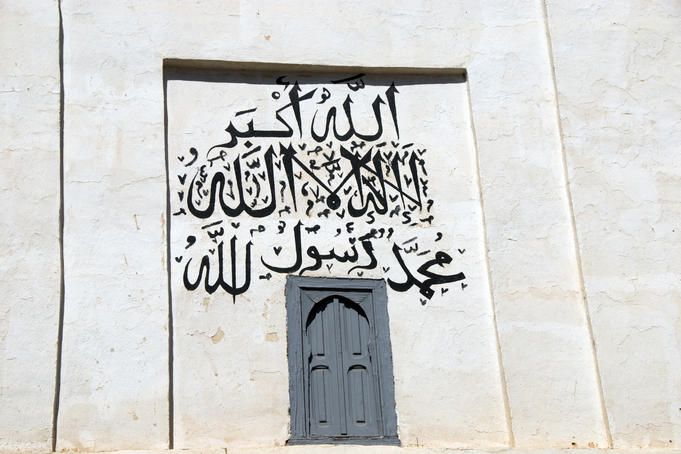 اللّٰهُ أَكْبَر
لَا إِلٰهَ إِلَّا اللّٰهُ
مُحَمَّدٌ رَّسُوْلُ اللّٰهِ